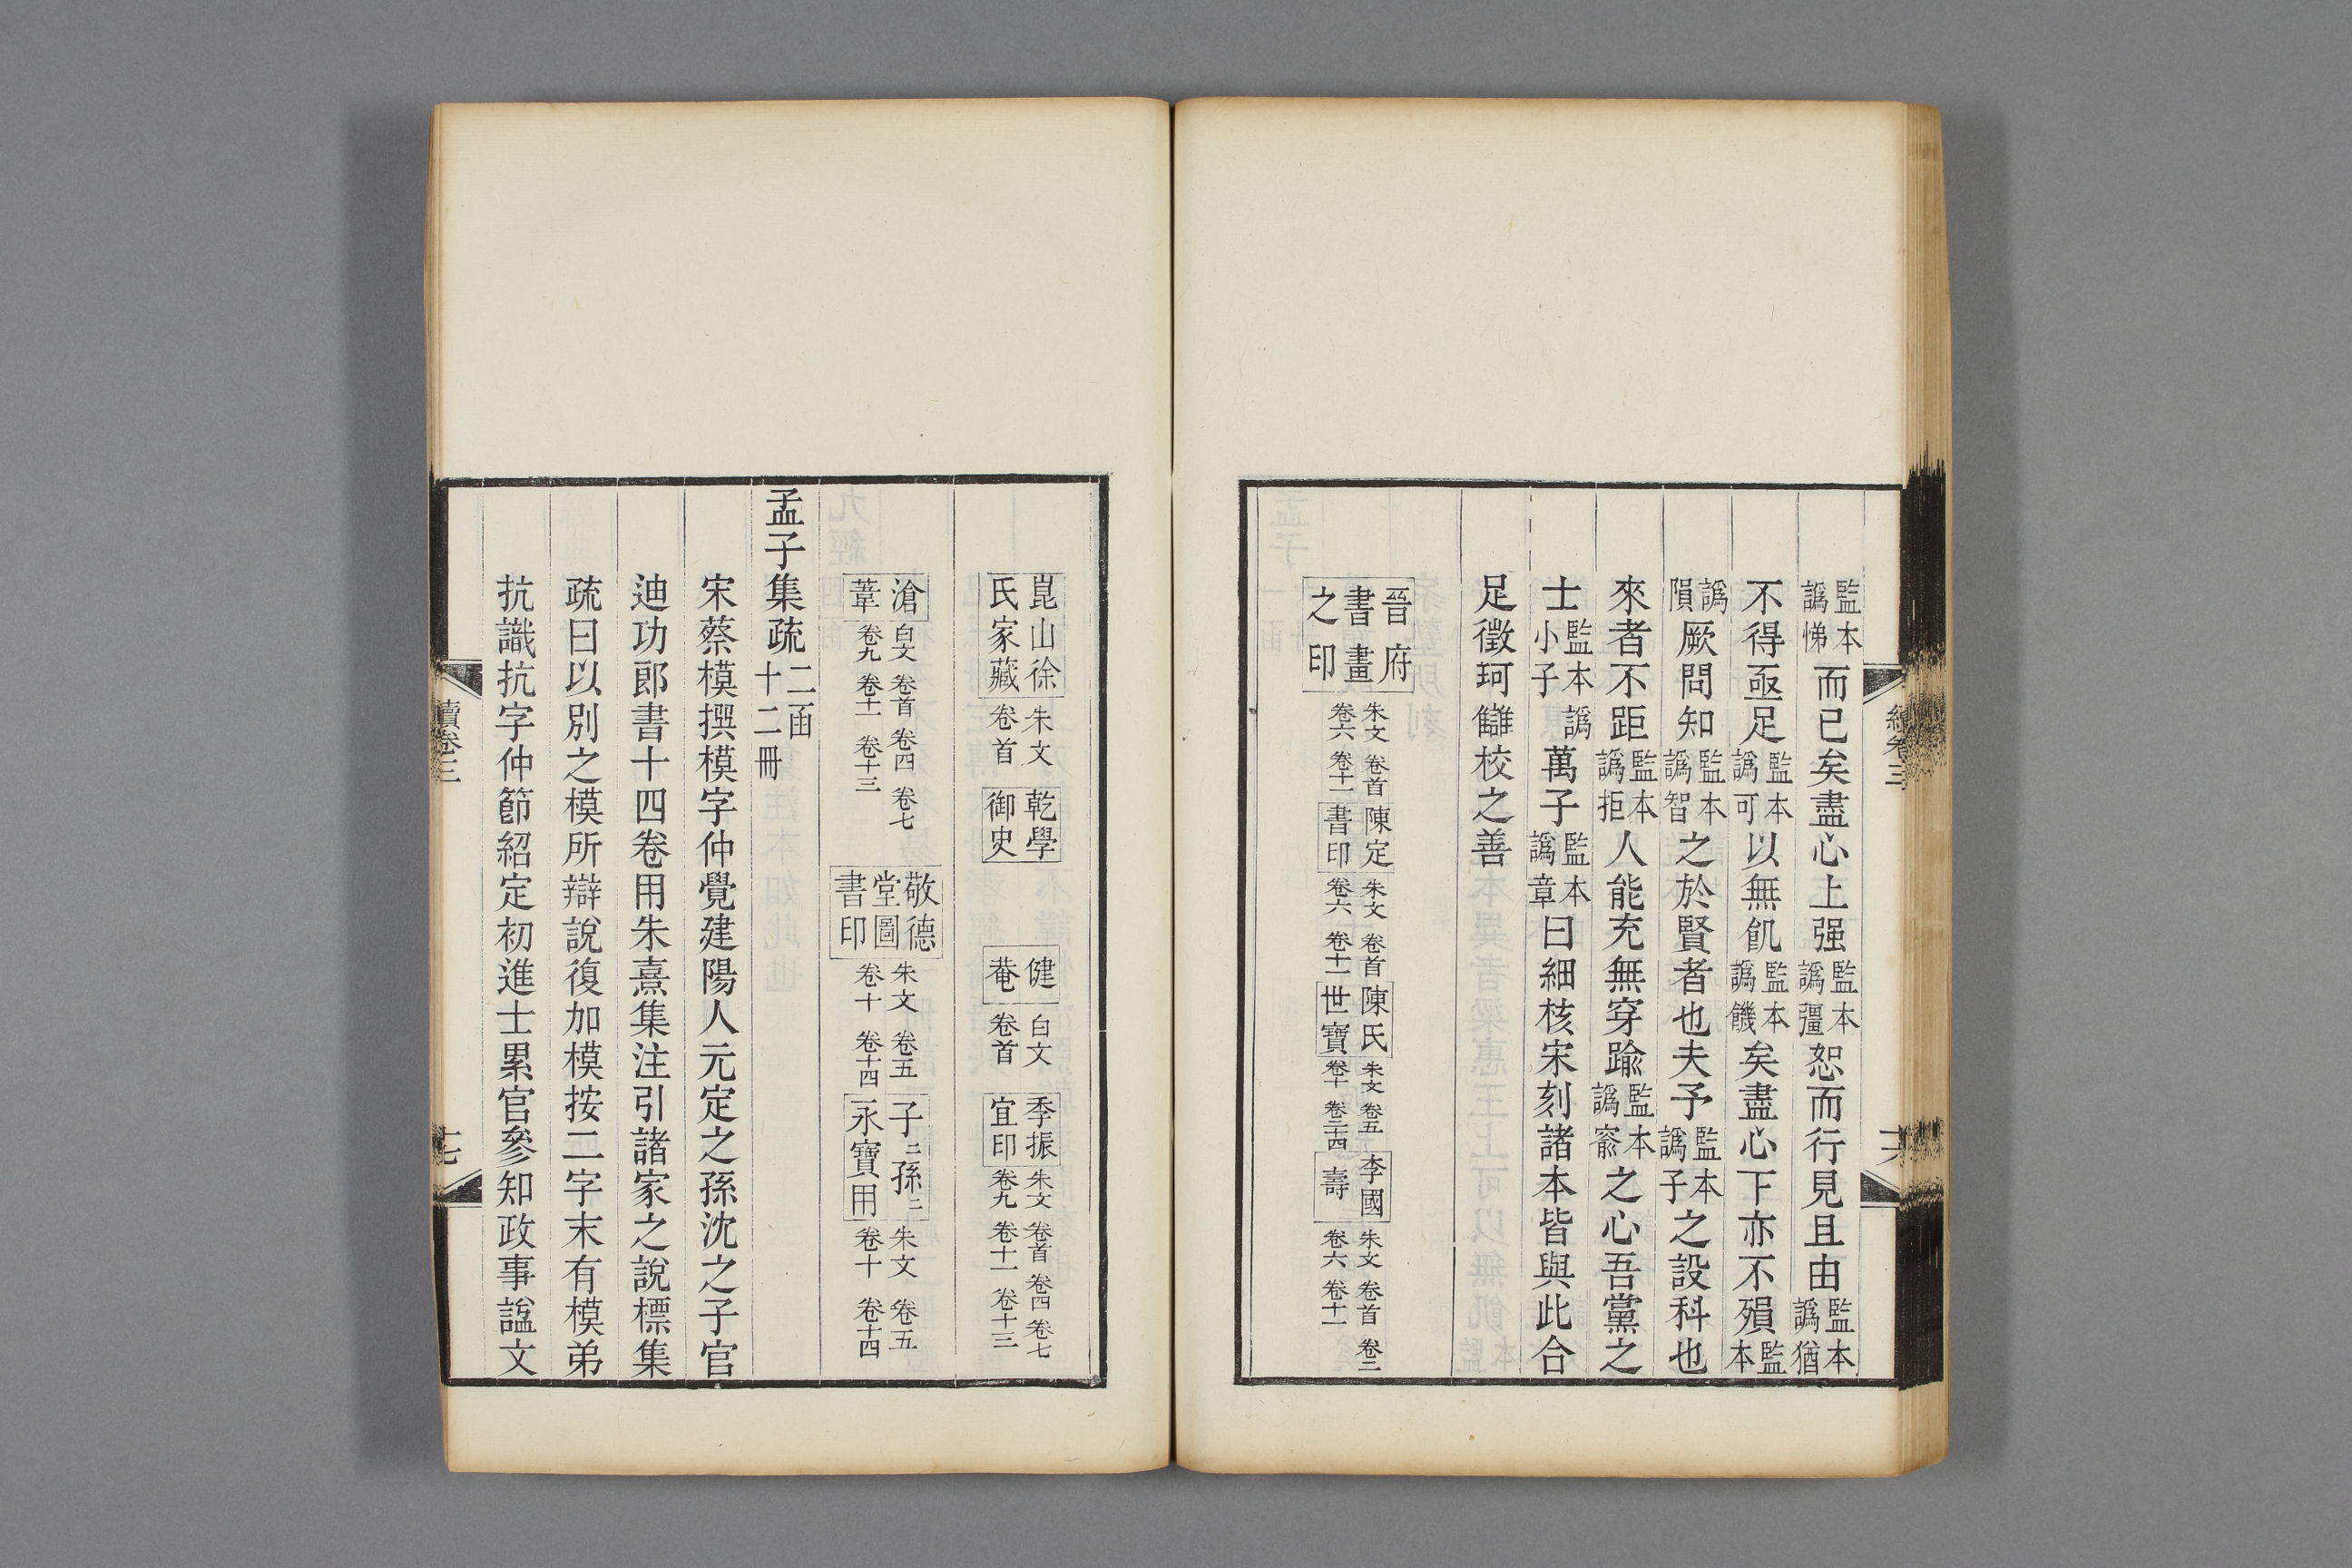 監本譌悌而已矣盡心上强監本譌彊恕而行見且由監本譌猶
不得亟足監本譌可以無飢監本譌饑矣盡心下亦不殞監本
譌隕厥問知監本譌智之於賢者也夫予監本譌子之設科也
來者不距監本譌拒人能充無穿踰監本譌窬之心吾黨之
士監本譌小子萬子監本譌章曰細核宋刻諸本皆與此合
足徵珂讎校之善
晉府書畫之印 朱文 卷首 卷六 卷十一 陳定書印 朱文 卷首 卷六 卷十一 陳氏世寶 朱文 卷五 卷十 卷十四 李國壽 朱文 卷首 卷二 卷六 卷十一
續卷三
十六
崑山徐氏家藏 朱文 卷首 乾學御史 健菴 白文 卷首 季振宜印 朱文 卷首 卷四 卷七 卷九 卷十一 卷十三
滄葦 白文 卷首 卷四 卷七 卷九 卷十一 卷十三 敬德堂圖書印 朱文 卷五 卷十 卷十四 子二孫二永寶用 朱文 卷五 卷十 卷十四
孟子集疏二函十二冊
宋蔡模撰模字仲覺建陽人元定之孫沈之子官
迪功郎書十四卷用朱熹集注引諸家之說標集
疏曰以別之模所辯說復加模按二字末有模弟
抗識抗字仲節紹定初進士累官參知政事諡文
續卷三
十七